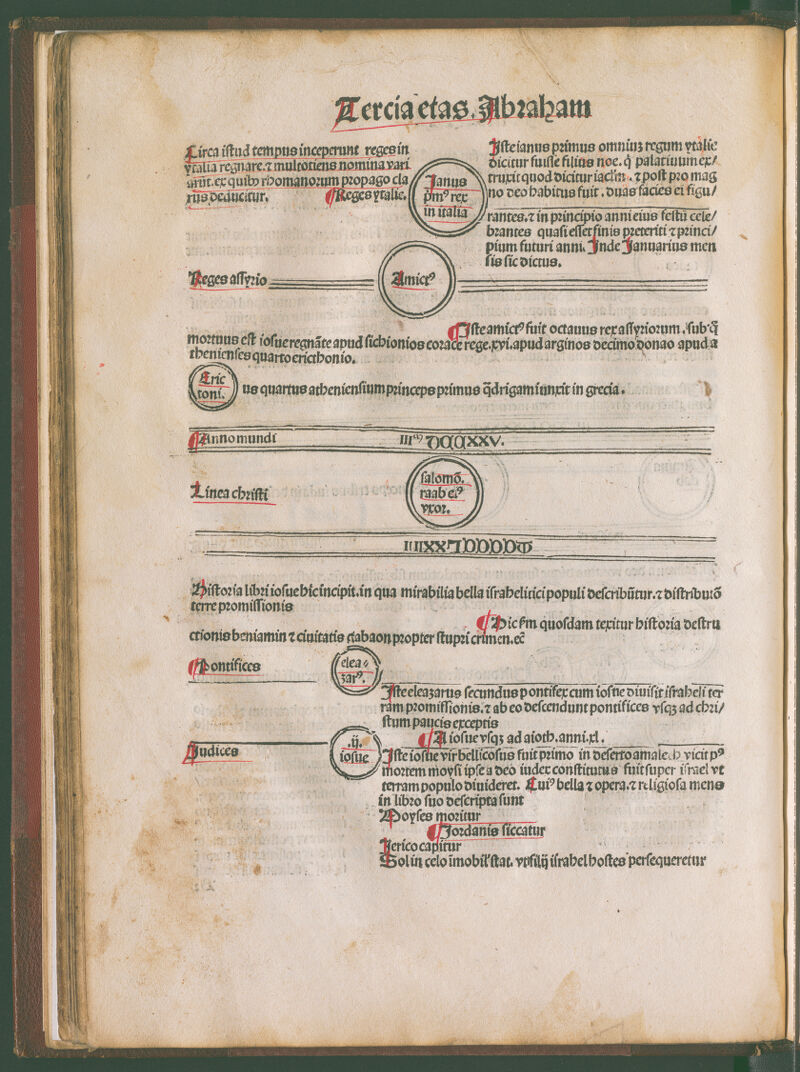 Tercia etas. Abraham
Circa istud tempus inceperunt reges in
ytalia regnare. ⁊ multotiens nomina vari
arūt. ex quibꝰ rhomanorum propago cla
rus deducitur. ¶Reges ytalie.
Janus
pmꝰ rex
in italia
Iste ianus primus omniuꝫ regum ytalie
dicitur fuisse filius noe. q̄ palatinum ex/
truxit quod dicitur . ⁊ post pro mag
no deo habitus fuit. duas facies ei figu/
rantes. ⁊ in principio anni eius festū cele/
brantes quasi esset finis preteriti ⁊ princi/
pium futuri anni. Inde Januarius men
sis sic dictus.
Reges assyrio
Amictꝰ
¶Iste amictꝰ fuit octauus rex assyriorum. sub q̄
mortuus est iosue regnāte apud sichionios corace rege. xvi. apud arginos decimo donao apud a
thenienses quarto ericthonio.
Eric
toni.
us quartus atheniensium princeps primus q̄drigam iunxit in grecia.
¶Anno mundi
Linea christi
salomō.
raab eiꝰ
vxor.
Historia libri iosue hic incipit. in qua mirabilia bella israhelitici populi describūtur. ⁊ distributō
terre promissionis
¶Hic s̄m quosdam texitur historia destru
ctionis beniamin ⁊ ciuitatis gabaon propter stupri crimen. ec̄
¶Pontifices
elea
zarꝰ.
Iste eleazarus secundus pontifex cum iosue diuisit israheli ter
ram promissionis. ⁊ ab eo descendunt pontifices vsqꝫ ad chri/
stum paucis exceptis
¶A iosue vsqꝫ ad aioth. anni. xl.
Judices
.ij.
iosue
Iste iosue vir bellicosus fuit primo in deserto amalech vicit pꝰ
mortem moysi ipse a deo iudex constitutus fuit super israel vt
terram populo diuideret. Cuiꝰ bella ⁊ opera. ⁊ religiosa mens
in libro suo descripta sunt
Moyses moritur
¶Jordanis siccatur
Jerico capitur
Sol in celo īmobil' stat. vt filij israhel hostes persequeretur